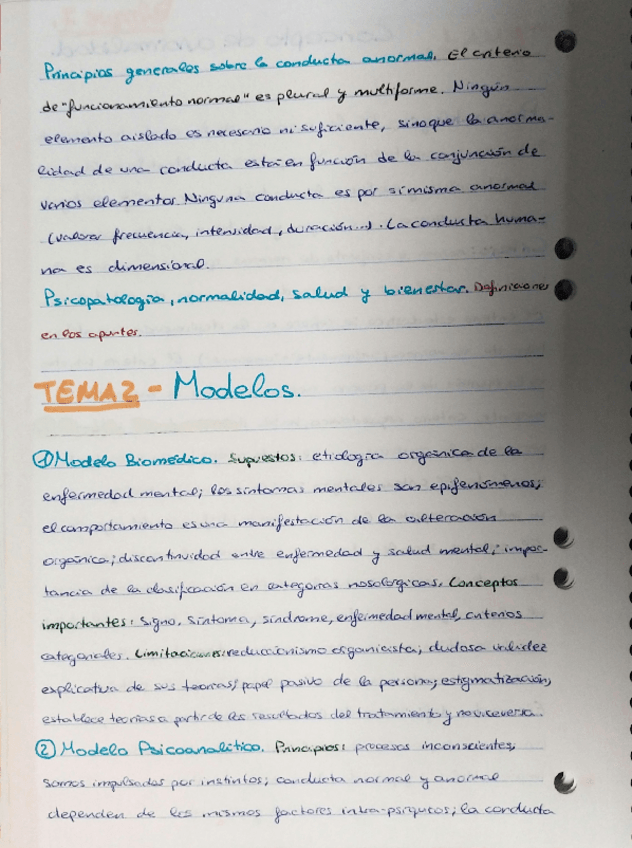 Principios generales sobre la conducta anormal. El criterio
de "funcionamiento normal" es plural y multiforme. Ningún
elemento aislado es necesario ni suficiente, sino que la anorma-
lidad de una conducta está en función de la conjunción de
varios elementos. Ninguna conducta es por si misma anormal
(valorar frecuencia, intensidad, duración...). La conducta huma-
na es dimensional.
Psicopatología, normalidad, salud y bienestar. Definiciones
en los apuntes.
TEMA 2 - Modelos.
① Modelo Biomédico. Supuestos: etiología orgánica de la
enfermedad mental; los síntomas mentales son epifenómenos;
el comportamiento es una manifestación de la alteración
orgánica; discontinuidad entre enfermedad y salud mental; impor-
tancia de la clasificación en categorías nosológicas. Conceptos
importantes: Signo, síntoma, síndrome, enfermedad mental, criterios
categoriales. Limitaciones: reduccionismo organicista; dudosa validez
explicativa de sus teorías; papel pasivo de la persona; estigmatización;
establece teorías a partir de los resultados del tratamiento y no viceversa.
② Modelo Psicoanalítico. Principios: procesos inconscientes;
somos impulsados por instintos; conducta normal y anormal
dependen de los mismos factores intra-psíquicos; la conducta